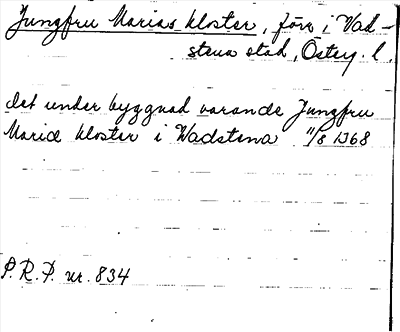 Jungfru Marias kloster, förr i Vad-
stena stad, Österg. l.
det under byggnad varande Jungfru
Mariæ kloster i Wadstena 11/8 1368
P.R.P. nr. 834